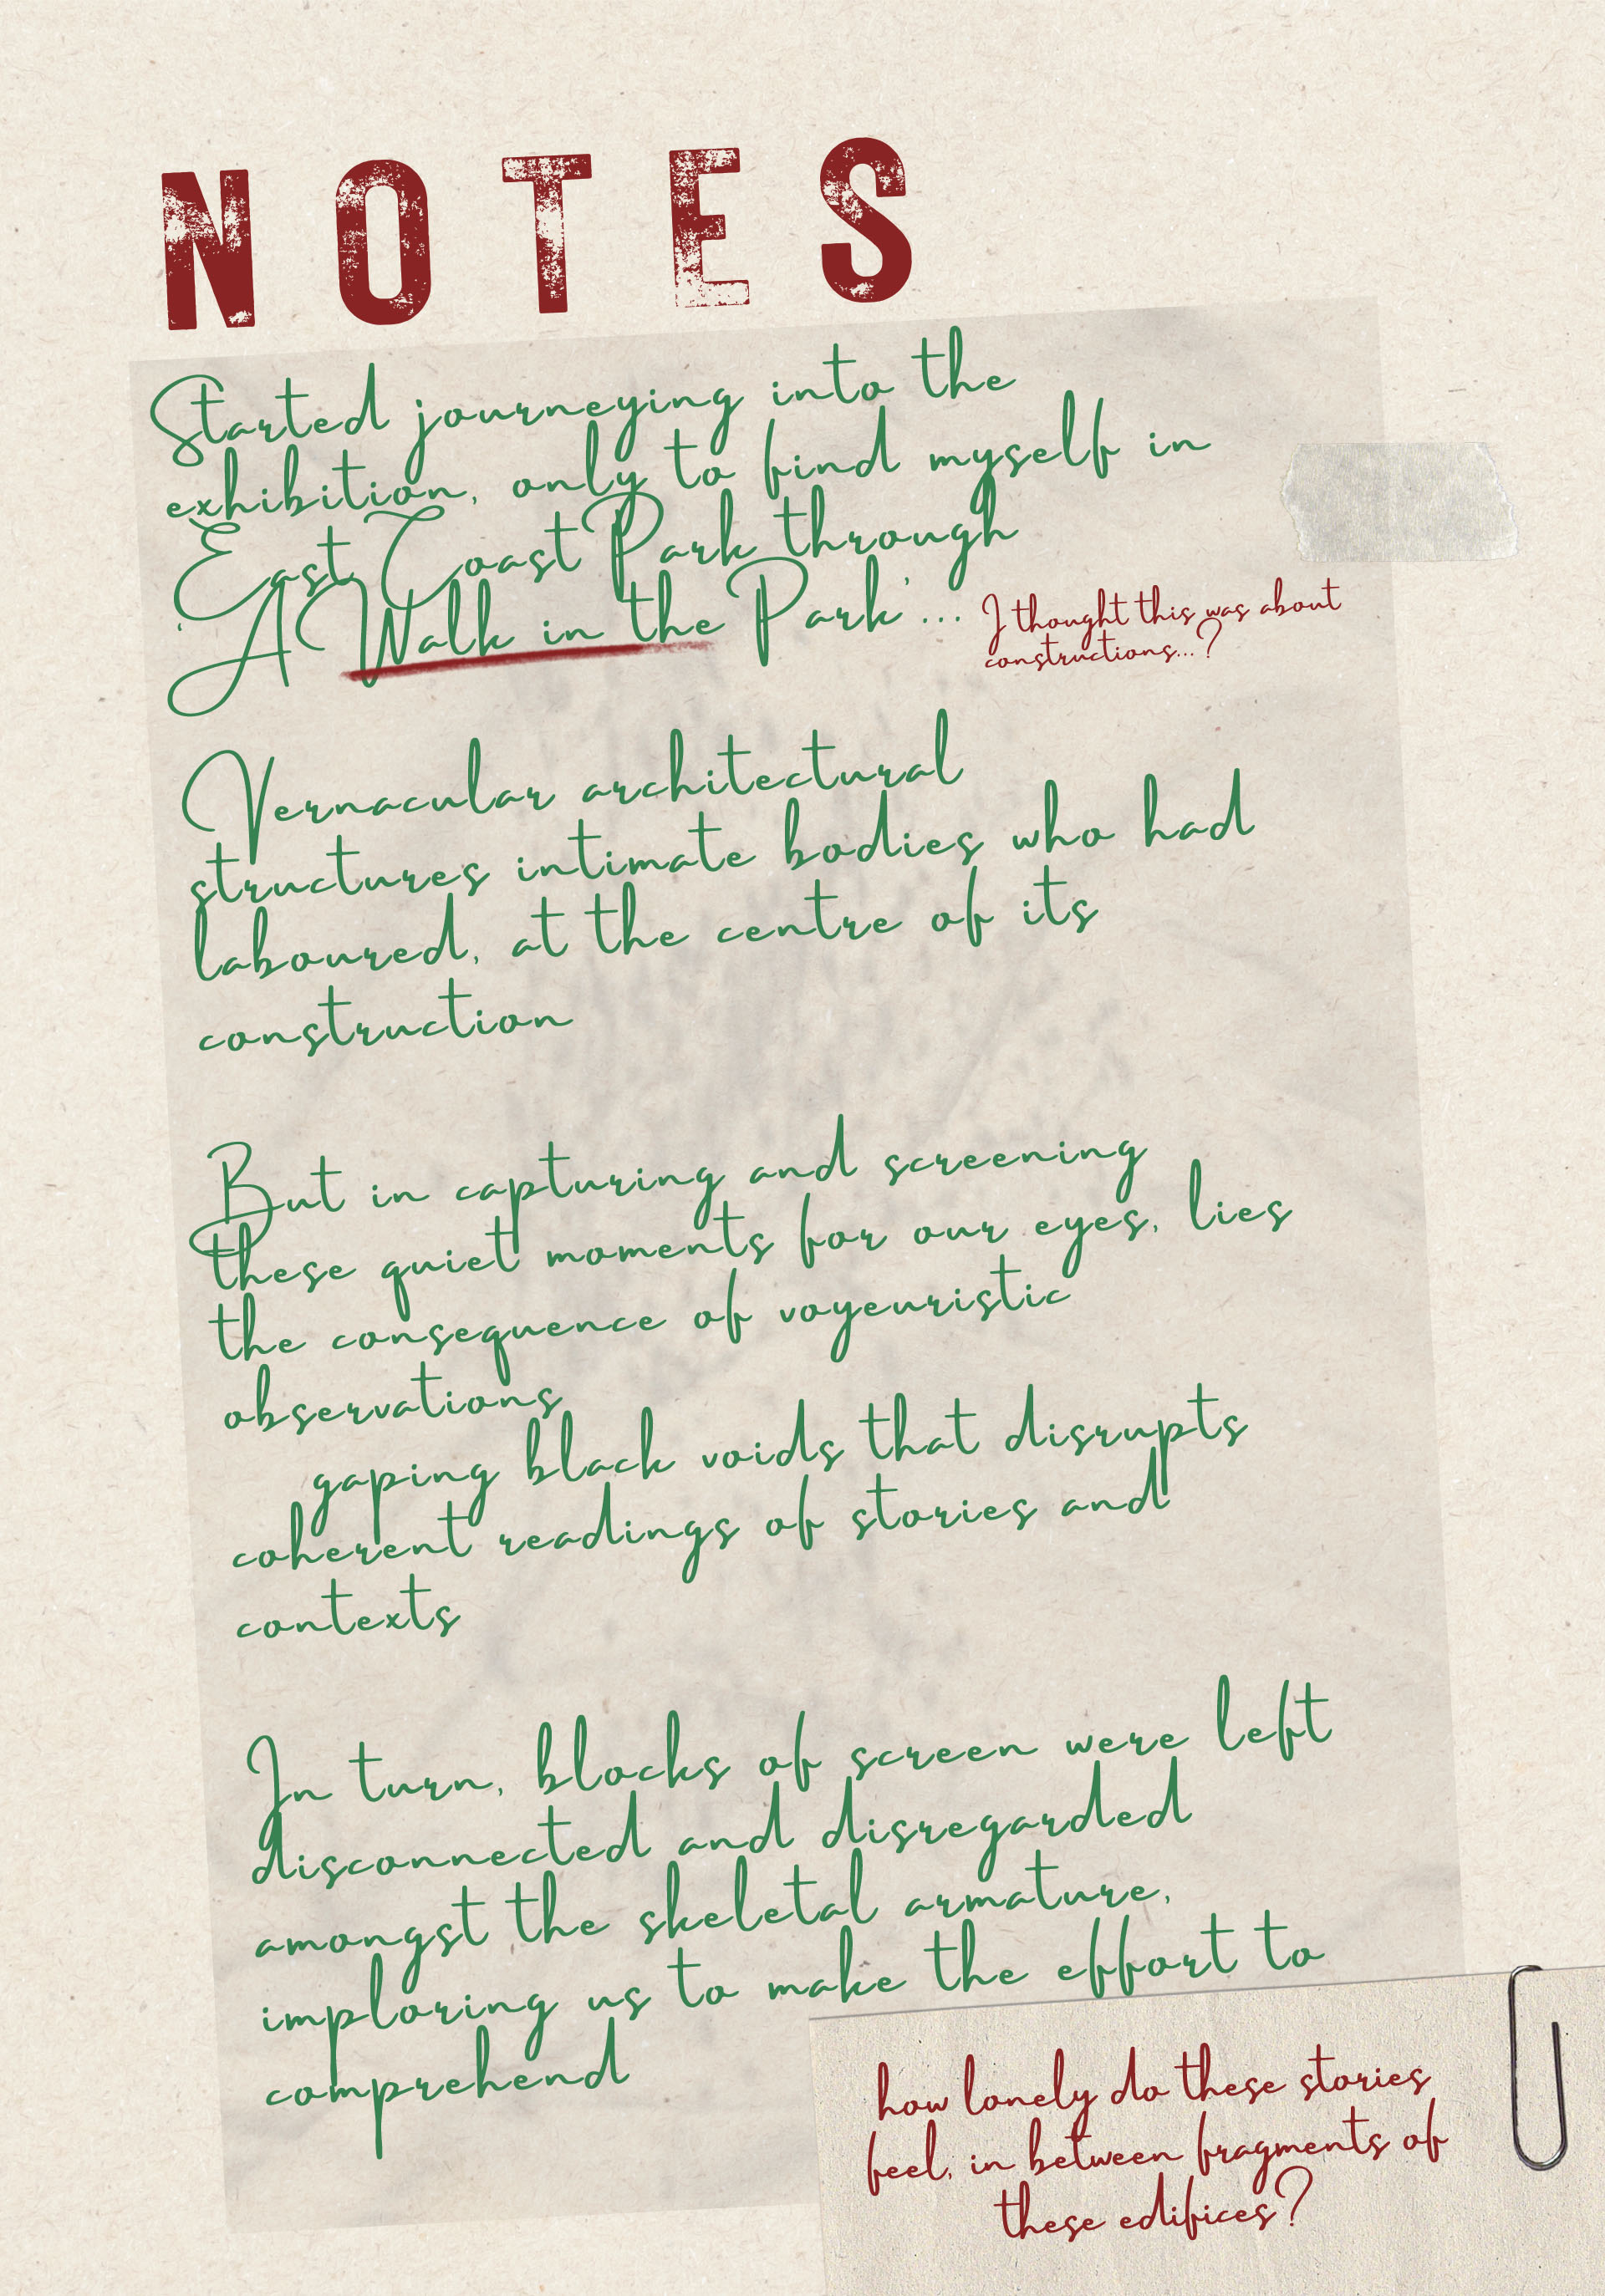 NOTES
Started journeying into the
exhibition, only to find myself in
East Coast Park through
'A Walk in the Park'...
I thought this was about
constructions...?
Vernacular architectural
structures intimate bodies who had
laboured, at the centre of its
construction
But in capturing and screening
these quiet moments for our eyes, lies
the consequence of voyeuristic
observations
gaping black voids that disrupts
coherent readings of stories and
contexts
In turn, blocks of screen were left
disconnected and disregarded
amongst the skeletal armature,
imploring us to make the effort to
comprehend
how lonely do these stories
feel, in between fragments of
these edifices?